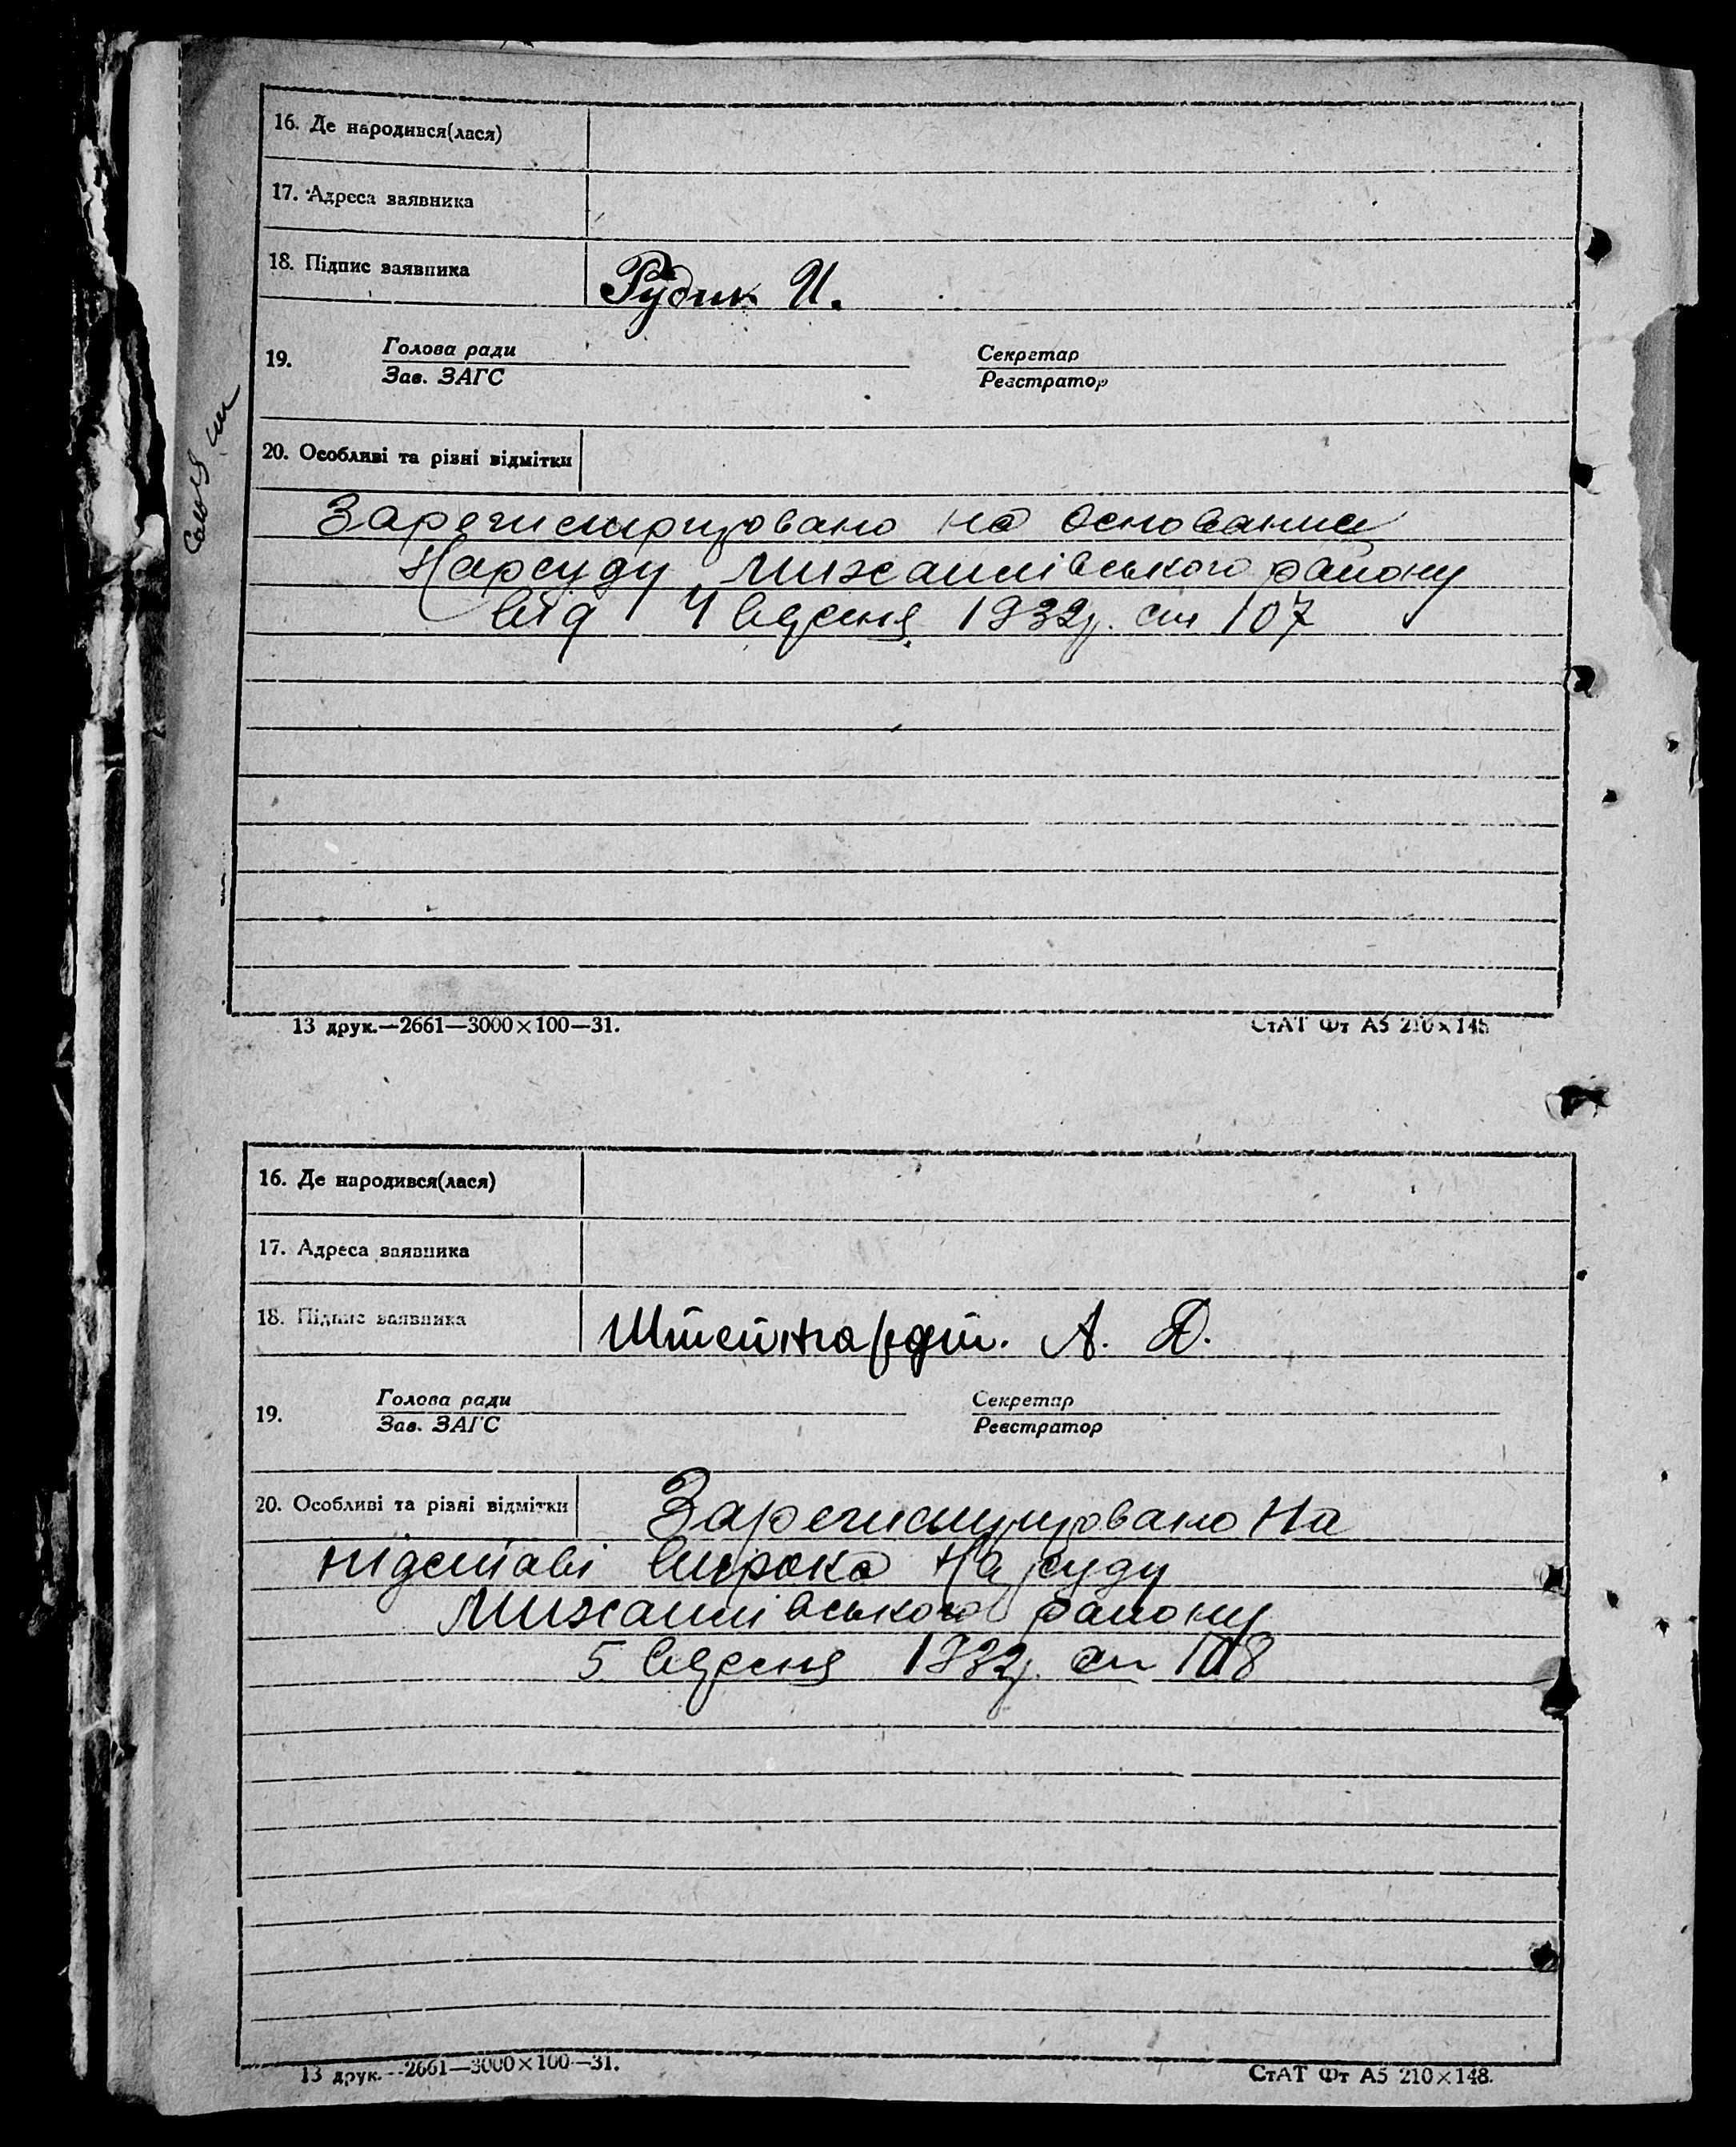 16. Де народився(лася)
17. Адреса заявника
18. Підпис заявника Рудик И.
19. Голова ради Секретар
Зав. ЗАГС Реєстратор
20. Особливі та різні відмітки
Зарегистрировано на основании
Нарсуду Михайлівського району
від 4 вересня 1932р. ст 107
13 друк.—2661—3000×100—31. СтАТ Фт А5 210×148
16. Де народився(лася)
17. Адреса заявника
18. Підпис заявника Штейнгардт. А. Д.
19. Голова ради Секретар
Зав. ЗАГС Реєстратор
20. Особливі та різні відмітки Зарегистрировано На
підставі вирока Нарсуду
Михайлівського району
5 вересня 1932р. ст 108
13 друк.—2661—3000×100—31. СтАТ Фт А5 210×148.